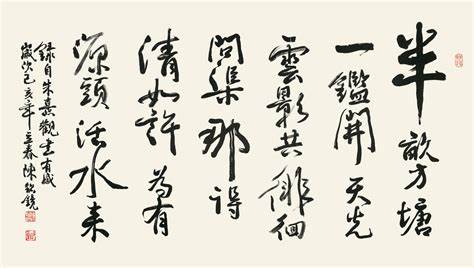 半畝方塘
一鑑開天光
雲影共徘徊
問渠那得
清如許為有
源頭活水来
錄自朱熹觀書有感
歲次己亥年立春陳